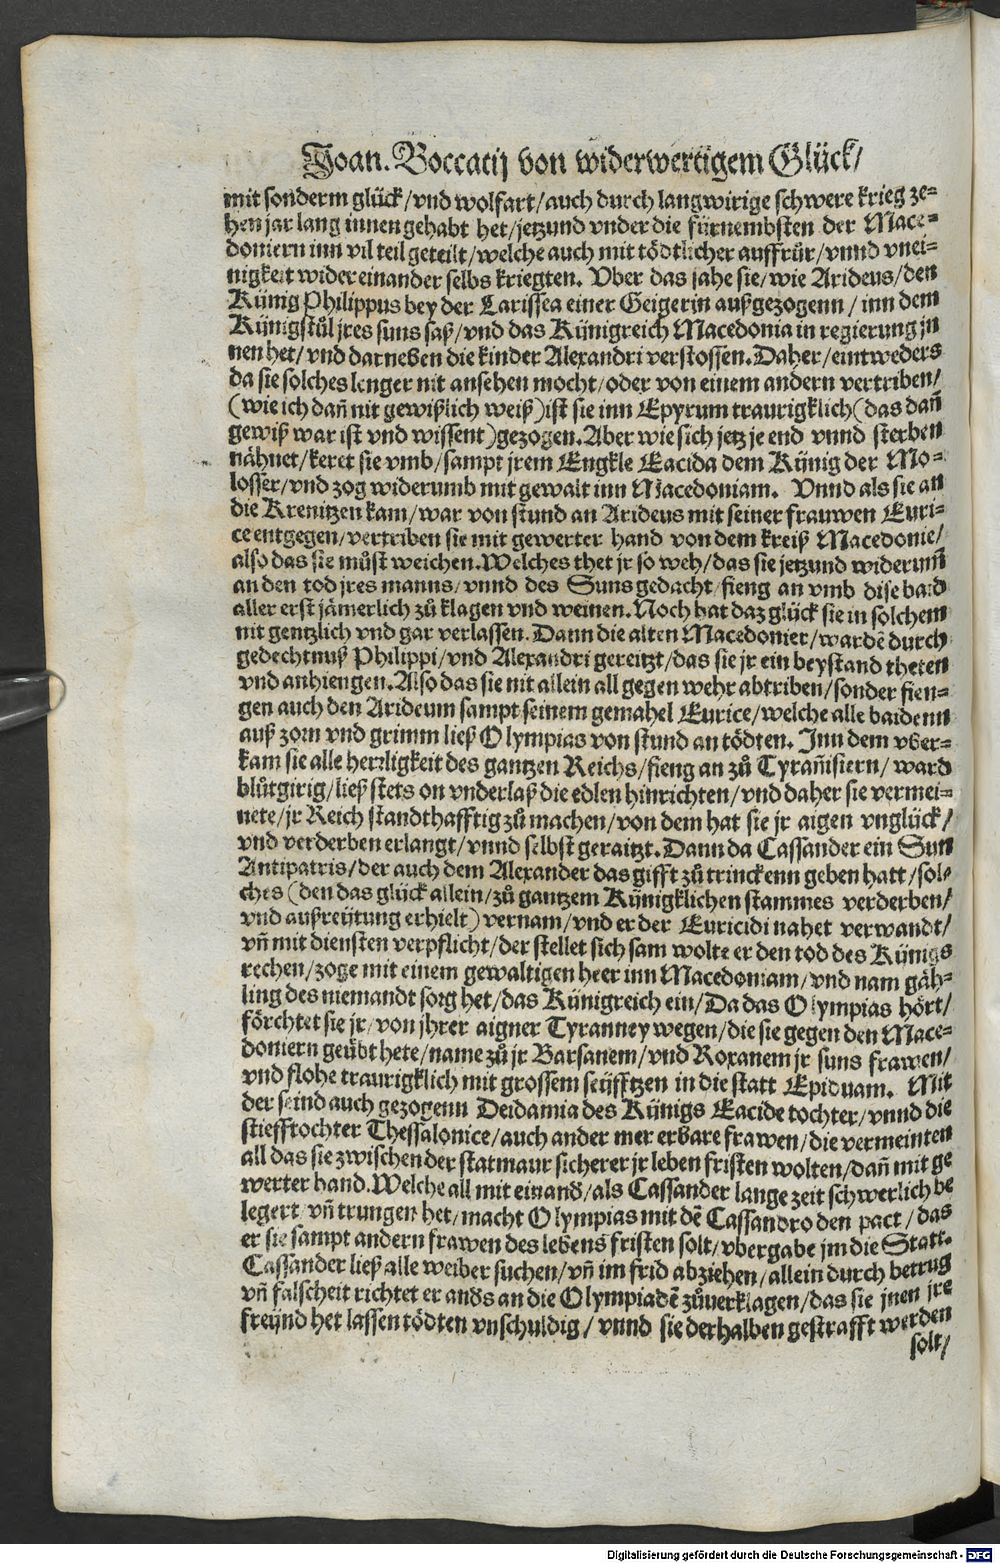 Joan. Boccatij von widerwertigem Glück/
mit sonderm glück/ vnd wolfart/ auch durch langwirige schwere krieg ze-
hen jar lang innen gehabt het/ jetzund vnder die fürnembsten der Mace-
doniern inn vil teil geteilt/ welche auch mit tödtlicher auffrůr/ vnnd vnei-
nigkeit wider einander selbs kriegten. Vber das sahe sie/ wie Arideus/ den
Künig Philippus bey der Larissea einer Geigerin außgezogenn/ inn dem
Künigstůl jres suns saß/ vnd das Künigreich Macedonia in regierung jn
nen het/ vnd darneben die kinder Alexandri verstossen. Daher/ eintweders
da sie solches lenger nit ansehen mocht/ oder von einem andern vertriben/
(wie ich dañ nit gewißlich weiß) ist sie inn Epyrum traurigklich (das dañ
gewiß war ist vnd wissent) gezogen. Aber wie sich jetz je end vnnd sterben
nähnet/ keret sie vmb/ sampt jrem Engkle Eacida dem Künig der Mo-
losser/ vnd zog widerumb mit gewalt inn Macedoniam. Vnnd als sie an
die Krenitzen kam/ war von stund an Arideus mit seiner frauwen Euri-
ce entgegen/ vertriben sie mit gewerter hand von dem kreiß Macedonie/
also das sie můst weichen. Welches thet jr so weh/ das sie jetzund widerum̃
an den tod jres manns/ vnnd des Suns gedacht/ fieng an vmb dise baid
aller erst jämerlich zů klagen vnd weinen. Noch hat daz glück sie in solchem
nit gentzlich vnd gar verlassen. Dann die alten Macedonier/ wardẽ durch
gedechtnuß Philippi/ vnd Alexandri gereitzt/ das sie jr ein beystand theten
vnd anhiengen. Also das sie nit allein all gegen wehr abtriben/ sonder fien-
gen auch den Arideum sampt seinem gemahel Eurice/ welche alle baidenn
auß zorn vnd grimm ließ Olympias von stund an tödten. Inn dem vber-
kam sie alle herrligkeit des gantzen Reichs/ fieng an zů Tyrañisiern/ ward
blůtgirig/ ließ stets on vnderlaß die edlen hinrichten/ vnd daher sie vermei-
nete/ jr Reich standthafftig zů machen/ von dem hat sie jr aigen vnglück/
vnd verderben erlangt/ vnnd selbst geraitzt. Dann da Cassander ein Sun
Antipatris/ der auch dem Alexander das gifft zů trinckenn geben hatt/ sol-
ches (den das glück allein/ zů gantzem Künigklichen stammes verderben/
vnd außreütung erhielt) vernam/ vnd er der Euricidi nahet verwandt/
vñ mit diensten verpflicht/ der stellet sich sam wolte er den tod des Künigs
rechen/ zoge mit einem gewaltigen heer inn Macedoniam/ vnd nam gäh-
ling des niemandt sorg het/ das Künigreich ein/ Da das Olympias hört/
förchtet sie jr/ von jhrer aigner Tyranney wegen/ die sie gegen den Mace-
doniern geübt hete/ name zů jr Barsanem/ vnd Roxanem jr suns frawen/
vnd flohe traurigklich mit grossem seüfftzen in die statt Epiduam. Mit
der seind auch gezogenn Deidamia des Künigs Eacide tochter/ vnnd die
stiefftochter Thessalonice/ auch ander mer erbare frawen/ die vermeinten
all das sie zwischen der statmaur sicherer jr leben fristen wolten/ dañ mit ge
werter hand. Welche all mit einand/ als Cassander lange zeit schwerlich be
legert/ vñ trungen het/ macht Olympias mit dẽ Cassandro den pact/ das
er sie sampt andern frawen des lebens fristen solt/ vbergabe jm die Statt.
Cassander ließ alle weiber suchen/ vñ im frid abziehen/ allein durch betrug
vñ falscheit richtet er anđs an die Olympiadẽ zůuerklagen/ das sie jnen jre
freünd het lassen tödten vnschuldig/ vnnd sie derhalben gestrafft werden
solt/
Digitalisierung gefördert durch die Deutsche Forschungsgemeinschaft - DFG